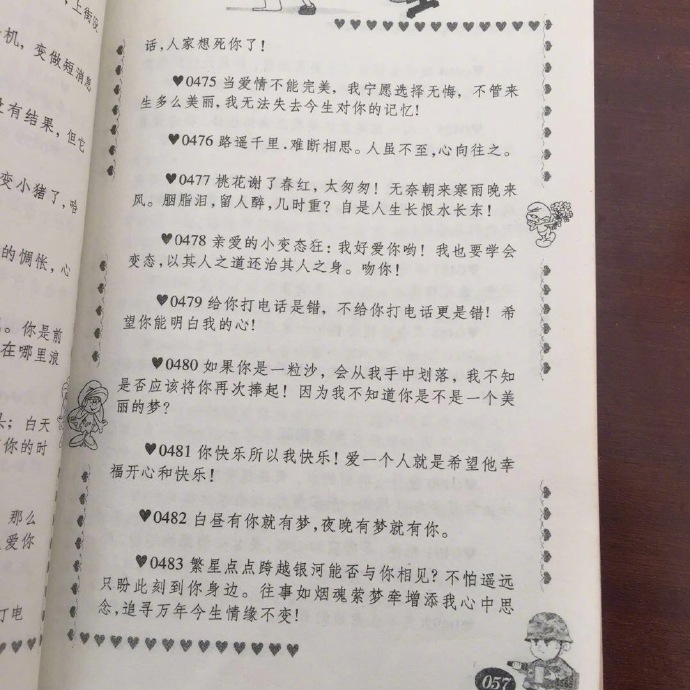 ，上街没
机，变做短消息
没有结果，但它
变小猪了，哈
的惆怅，心
。你是前
在哪里浪
头；白天
你的时
那么
爱你
打电
话，人家想死你了！
♥0475 当爱情不能完美，我宁愿选择无悔，不管来
生多么美丽，我无法失去今生对你的记忆！
♥0476 路遥千里.难断相思。人虽不至，心向往之。
♥0477 桃花谢了春红，太匆匆！无奈朝来寒雨晚来
风。胭脂泪，留人醉，几时重？自是人生长恨水长东！
♥0478 亲爱的小变态狂：我好爱你哟！我也要学会
变态，以其人之道还治其人之身。吻你！
♥0479 给你打电话是错，不给你打电话更是错！希
望你能明白我的心！
♥0480 如果你是一粒沙，会从我手中划落，我不知
是否应该将你再次捧起！因为我不知道你是不是一个美
丽的梦？
♥0481 你快乐所以我快乐！爱一个人就是希望他幸
福开心和快乐！
♥0482 白昼有你就有梦，夜晚有梦就有你。
♥0483 繁星点点跨越银河能否与你相见？不怕遥远
只盼此刻到你身边。往事如烟魂萦梦牵增添我心中思
念，追寻万年今生情缘不变！
057